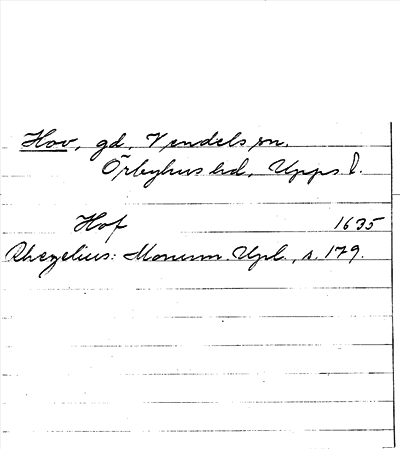 Hov, gd, Vendels sn.
Örbyhus hd, Upps l.
Hof 1635
Rhezelius: Monum. Upl., s. 179.